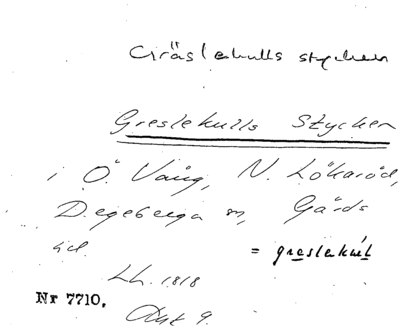 Gräslekulls stycken
Greslekulls Stycken
i Ö. Vång, N. Lökaröd,
Degeberga sn, Gärds
hd. = greslekul
Lh. 1818
Akt 9.
Nr 7710.